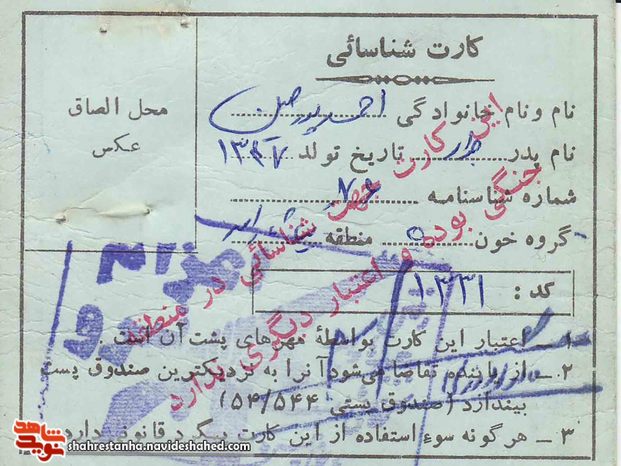 کارت شناسائی
محل الصاق
عکس
نام و نام خانوادگی احمد
نام پدر تاریخ تولد ۱۳۳۷
شماره شناسنامه ۷۶
گروه خون منطقه
کد : ۱۳۳۱
این کارت جهت شناسائی در منطقه
جنگی بوده و اعتبار دیگری ندارد
۱ ــ اعتبار این کارت بواسطهٔ مهرهای پشت آن است .
۲ ــ از یابنده تقاضا می‌شود آنرا به نزدیکترین صندوق پست
بیندازد (صندوق پستی ۵۴/۵۴۴)
۳ ــ هرگونه سوء استفاده از این کارت پیگرد قانونی دارد
نوید شاهد
shahrestanha.navideshahed.com